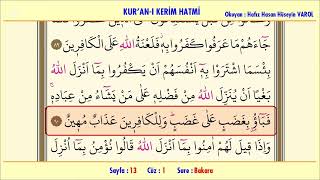 KUR'AN-I KERİM HATMİ
Okuyan : Hafız Hasan Hüseyin VAROL
جَٓاءَهُمْ مَا عَرَفُوا كَفَرُوا بِهٖۘ فَلَعْنَةُ اللّٰهِ عَلَى الْكَافِرٖينَ
بِئْسَمَا اشْتَرَوْا بِهٖٓ اَنْفُسَهُمْ اَنْ يَكْفُرُوا بِمَٓا اَنْزَلَ اللّٰهُ
بَغْيًا اَنْ يُنَزِّلَ اللّٰهُ مِنْ فَضْلِهٖ عَلٰى مَنْ يَشَٓاءُ مِنْ عِبَادِهٖۚ
فَبَٓاؤُ۫ بِغَضَبٍ عَلٰى غَضَبٍۜ وَلِلْكَافِرٖينَ عَذَابٌ مُهٖينٌ
وَاِذَا قٖيلَ لَهُمْ اٰمِنُوا بِمَٓا اَنْزَلَ اللّٰهُ قَالُوا نُؤْمِنُ بِمَٓا اُنْزِلَ
Sayfa : 13 Cüz : 1 Sure : Bakara